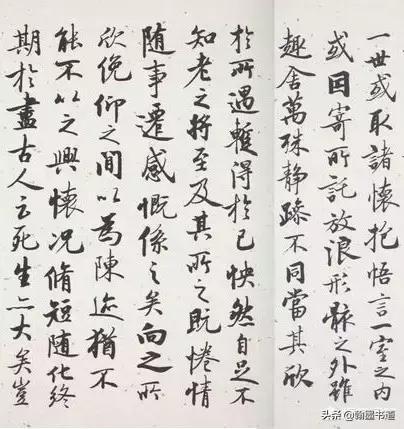 一世或取諸懷抱悟言一室之内
或因寄所託放浪形骸之外雖
趣舍萬殊静躁不同當其欣
於所遇蹔得於己怏然自足不
知老之將至及其所之既惓情
随事遷感慨係之矣向之所
欣俛仰之間以為陳迹猶不
能不以之興懷况脩短随化終
期於盡古人云死生亦大矣豈
头条 @翰墨书道